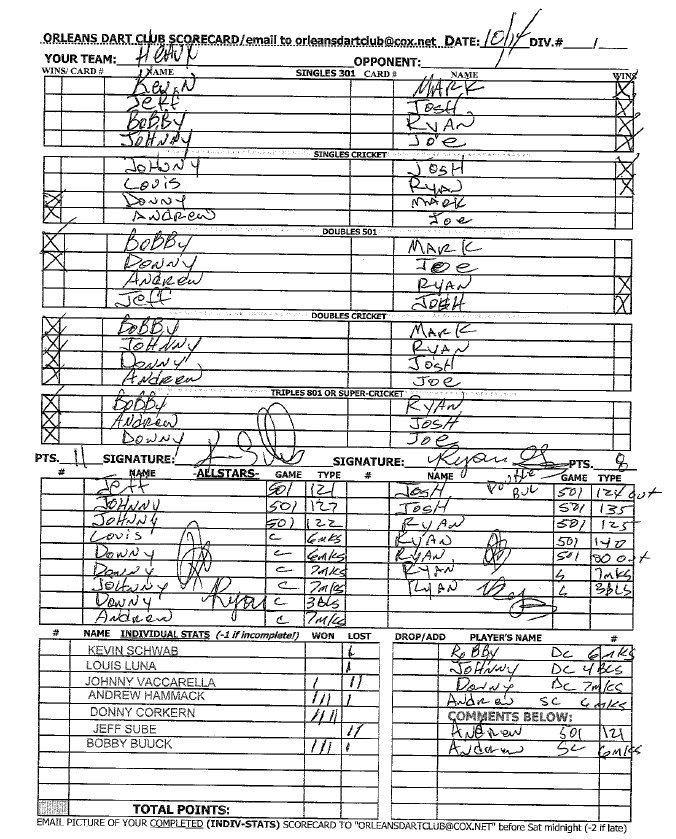 ORLEANS DART CLUB SCORECARD/email to orleansdartclub@cox.net DATE: 10/14 DIV.# 1
YOUR TEAM: OPPONENT:
WINS/ CARD # NAME SINGLES 301 CARD # NAME WINS
Kevin MARK X
Jeff Josh X
BoBBy RYAN X
JoHNNy Joe X
SINGLES CRICKET
JoHNNy JOSH X
Louis Ryan X
X DONNY MARK
X ANDREW Joe
DOUBLES 501
X BoBBy MARK
X DONNY Joe
ANDREW RYAN X
Jeff JOSH X
DOUBLES CRICKET
X BoBBy MARK
X JoHNNy RYAN
X DONNY JOSH
X ANDREW Joe
TRIPLES 801 OR SUPER-CRICKET
X BoBBy RYAN
X ANDREW JOSH
X DONNY Joe
PTS. 11 SIGNATURE: SIGNATURE: Ryan PTS. 8
# NAME -ALLSTARS- GAME TYPE # NAME GAME TYPE
Jeff 501 121 JOSH Double Bull 501 124 out
JOHNNY 501 127 JOSH 501 135
JOHNNY 501 122 RYAN 501 125
Louis C 6mks RYAN 501 140
DONNY C 6mks RYAN 501 80 out
DONNY C 7mks RYAN C 7mks
JOHNNY C 7mks RYAN C 3bls
DONNY Ryan C 3BLS
ANDREW C 7mks
# NAME INDIVIDUAL STATS (-1 if incomplete!) WON LOST DROP/ADD PLAYER'S NAME #
KEVIN SCHWAB I BoBBY DC 6mks
LOUIS LUNA I JOHNNY DC 4BLS
JOHNNY VACCARELLA I II DONNY DC 7mks
ANDREW HAMMACK III I ANDREW SC 6mks
DONNY CORKERN IIII COMMENTS BELOW:
JEFF SUBE II ANDREW 501 121
BOBBY BUUCK III I ANDREW SC 6mks
TOTAL POINTS:
EMAIL PICTURE OF YOUR COMPLETED (INDIV-STATS) SCORECARD TO "ORLEANSDARTCLUB@COX.NET" before Sat midnight (-2 if late)